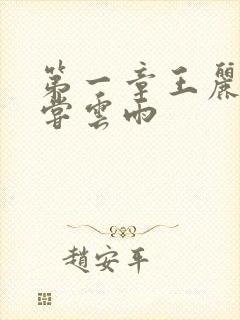 第一章王麗
嘗雲雨
趙安平